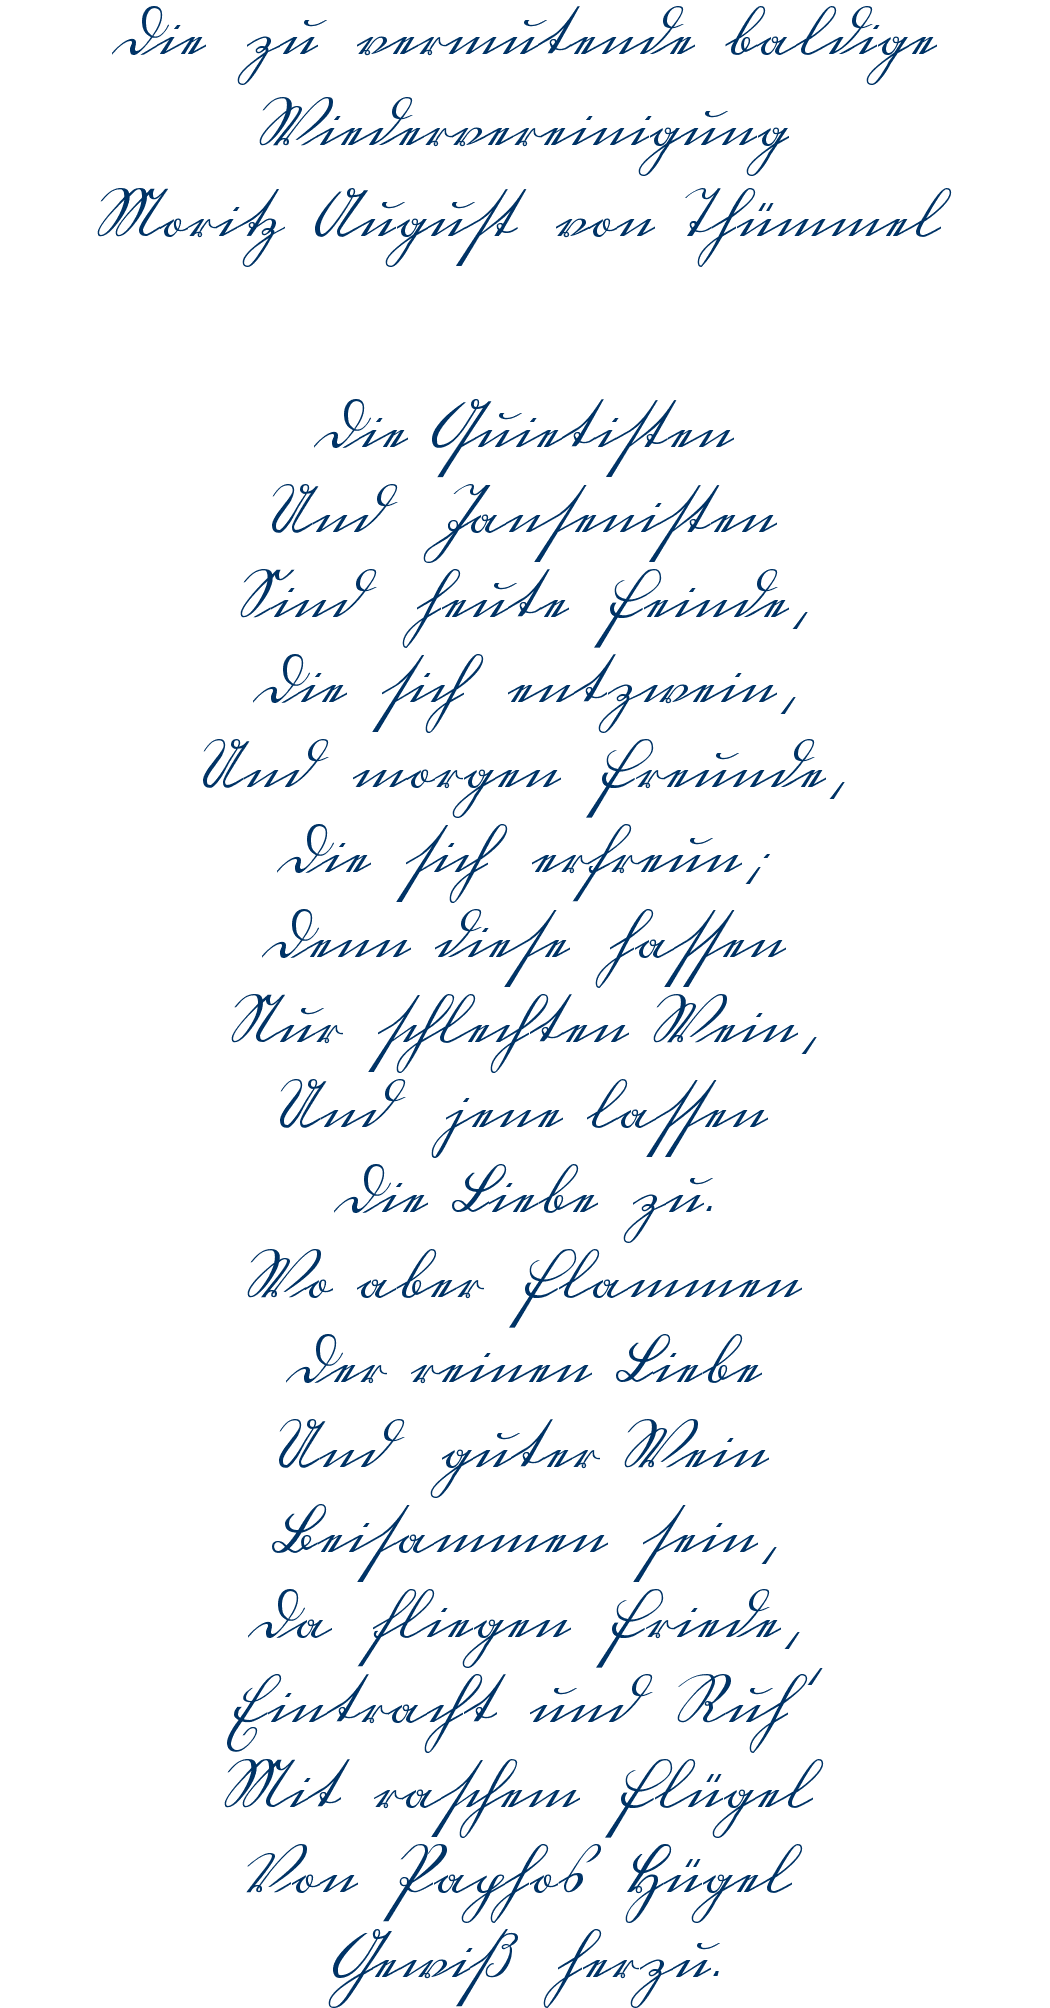 Die zu vermutende baldige
Wiedervereinigung
Moritz August von Thümmel
Die Quietisten
Und Jansenisten
Sind heute Feinde,
Die sich entzwein,
Und morgen Freunde,
Die sich erfreun;
Denn diese hassen
Nur schlechten Wein,
Und jene lassen
Die Liebe zu.
Wo aber Flammen
Der reinen Liebe
Und guter Wein
Beisammen sein,
Da fliegen Friede,
Eintracht und Ruh'
Mit raschem Flügel
Von Paphos Hügel
Gewiß herzu.